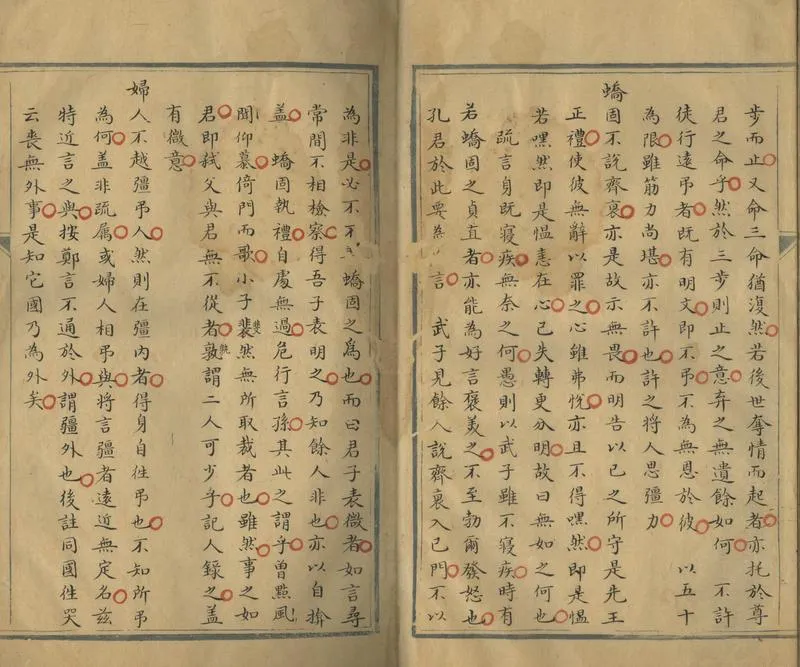 步而止又命三命猶復然若後世奪情而起者亦托於尊
君之命乎然於三步則止之意弃之無遺餘如何 不許
徒行遠弔者既有明文即不弔不為無恩於彼 以五十
為限雖筋力尚堪亦不許也許之將人思彊力
蟜固不說齊衰亦是故示無畏而明告以已之所守是先王
正禮使彼無辭以罪之心雖弗悅亦且不得嘿然即是慍
若嘿然即是慍恚在心已失轉更分明故曰無如之何也
疏言身既寢疾無奈之何愚則以武子雖不寢疾時有
若蟜固之貞直者亦能為好言褒美之不至勃爾發怒也
孔君於此要為 言 武子見餘人說齊衰入已門不以
為非是必不不 蟜固之為也而曰君子表微者如言尋
常間不相檢察得吾子表明之乃知餘人非也亦以自揜
盖 蟜固執禮自處無過危行言孫其此之謂乎曾點風
聞仰慕倚門而歌小子裴斐然無所取裁者也雖然事之如
君即弒父與君無不從者敦孰謂二人可少乎記人錄之盖
有微意
婦人不越疆弔人然則在疆內者得身自往弔也不知所弔
為何盖非疏属或婦人相弔與將言疆者遠近無定名茲
特近言之與按鄭言不通於外謂疆外也後註同國往哭
云喪無外事是知它國乃為外矣